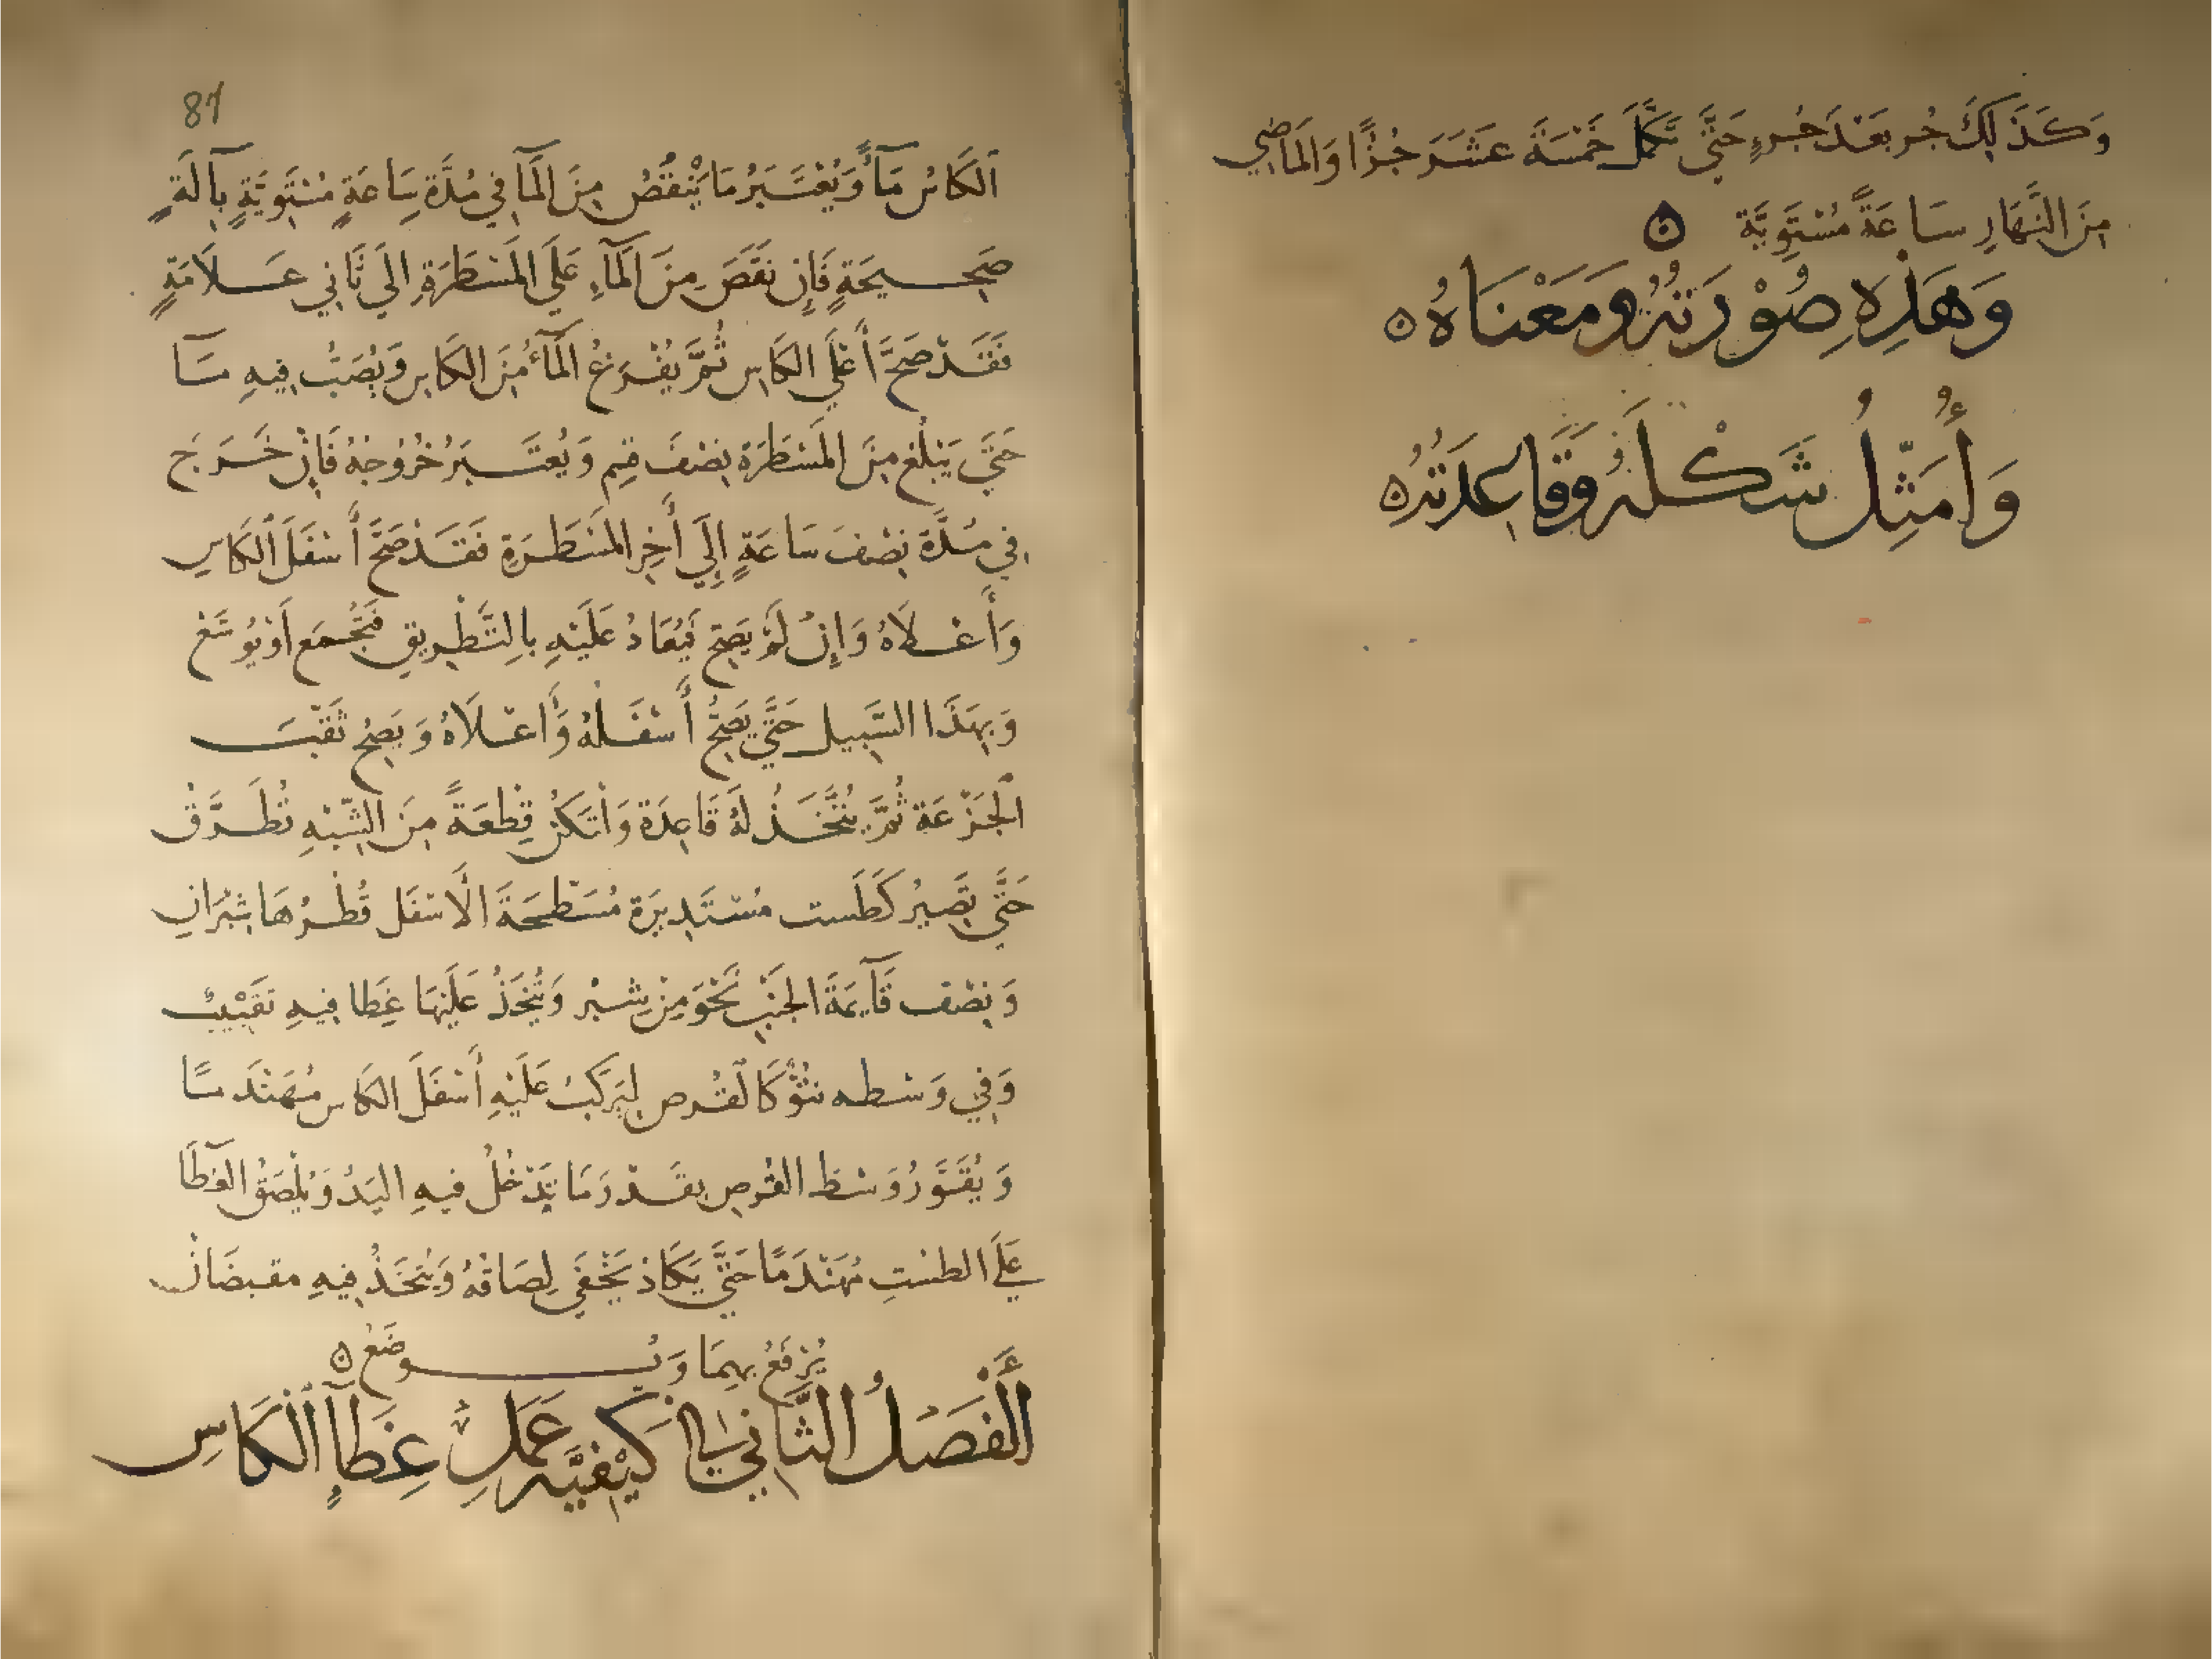 وَكَذَلِكَ جُز بَعْدَ جُزءٍ حَتَّى تَكْمُلَ خَمْسَةَ عَشَرَ جُزْاً وَالمَاضِي
مِنَ النَّهَارِ سَاعَةً مُسْتَوِيَّة ه
وَهَذِهِ صُوْرَتُهُ وَمَعْنَاهُ ه
وَأُمَثِّلُ شَكْلَهُ وَقَاعِدَتُهُ ه
87
اَلكَاسُ مَآءً وَيُعْتَبَرُ مَا يَنْقُصُ مِنَ المَآ فِي مُدَّة سَاعَةٍ مُسْتَوِيَّةٍ بِآلَةٍ
صَحِيحَةٍ فَإِن نَقَصَ مِنَ المَآءِ عَلَي المَسْطَرَةِ الَي ثَانِي عَلَامَةٍ
فَقَدْ صَحَّ أَعْلَي الكَاسِ ثُمَّ يُفْرَغُ المَآءُ مِنَ الكَاسِ وَيُصَبُّ فِيهِ مَآ
حَتَّي يَبْلُغ مِنَ المَسْطَرَة نِصْفَ قِسم وَيُعْتَبَرُ خُرُوجَهُ فَإِنْ خَرَجَ
فِي مُدَّة نِصْفَ سَاعَةٍ اِلَي أَخِرِ المَسْطَرَةِ فَقَدْ صَحَّ أَسْفَلَ الكَاسِ
وَأَعْلَاهُ وَإِنْ لَمْ يَصِحّ فَيُعَادُ عَلَيْهِ بِالتَّطْرِيقِ فَيُجْمَع أَوْ يُوسَّعْ
وَبِهَذَا السَّبِيل حَتَّي يَصِحَّ أَسْفَلَهُ وَأَعْلَاهُ وَيَصِحُ ثَقْبَ
الجَزْعَة ثُمَّ يُتَّخَذُ لَهُ قَاعِدَة وَلْتَكُنْ قِطْعَةً مِنَ الشَّبَهِ تُطَرَّقْ
حَتَّي تَصِيْرُ كَطَست مُسْتَدِيرَة مُسَطَّحَةَ الأَسْفَل قُطْرُهَا شِبْرَانِ
وَنِصْف قَآيِمَةَ الجَنْبِ نَحْوَ مِنْ شِبْر وَيُتَّخَذُ عَلَيْهَا غِطَا فِيهِ تَقْبِيْبُ
وَفِي وَسْطِه نُتُوٌّ كَالقُرصِ لِيَركَبُ عَلَيْهِ أَسْفَلَ الكَاسِ مُهَنْدَمًا
وَيُقَوَّرُ وَسْطِ القُرصِ بِقَدْرِ مَا تَدْخُلُ فِيهِ اليَدُ وَيُلْصَقُ الغِطَآ
عَلَي الطسْتِ مُهَنْدَمًا حَتَّي يَكَاد يَخْفَي لِصَاقُهُ وَيُتَّخَذُ فِيهِ مقبضَانْ
يُرْفَعُ بِهِمَا وَيُوضَعُ ه
اَلْفَصْلُ الثَّانِي فِي كَيْفِيَّةِ عَمَلِ غِطَآءِ الكَاسِ